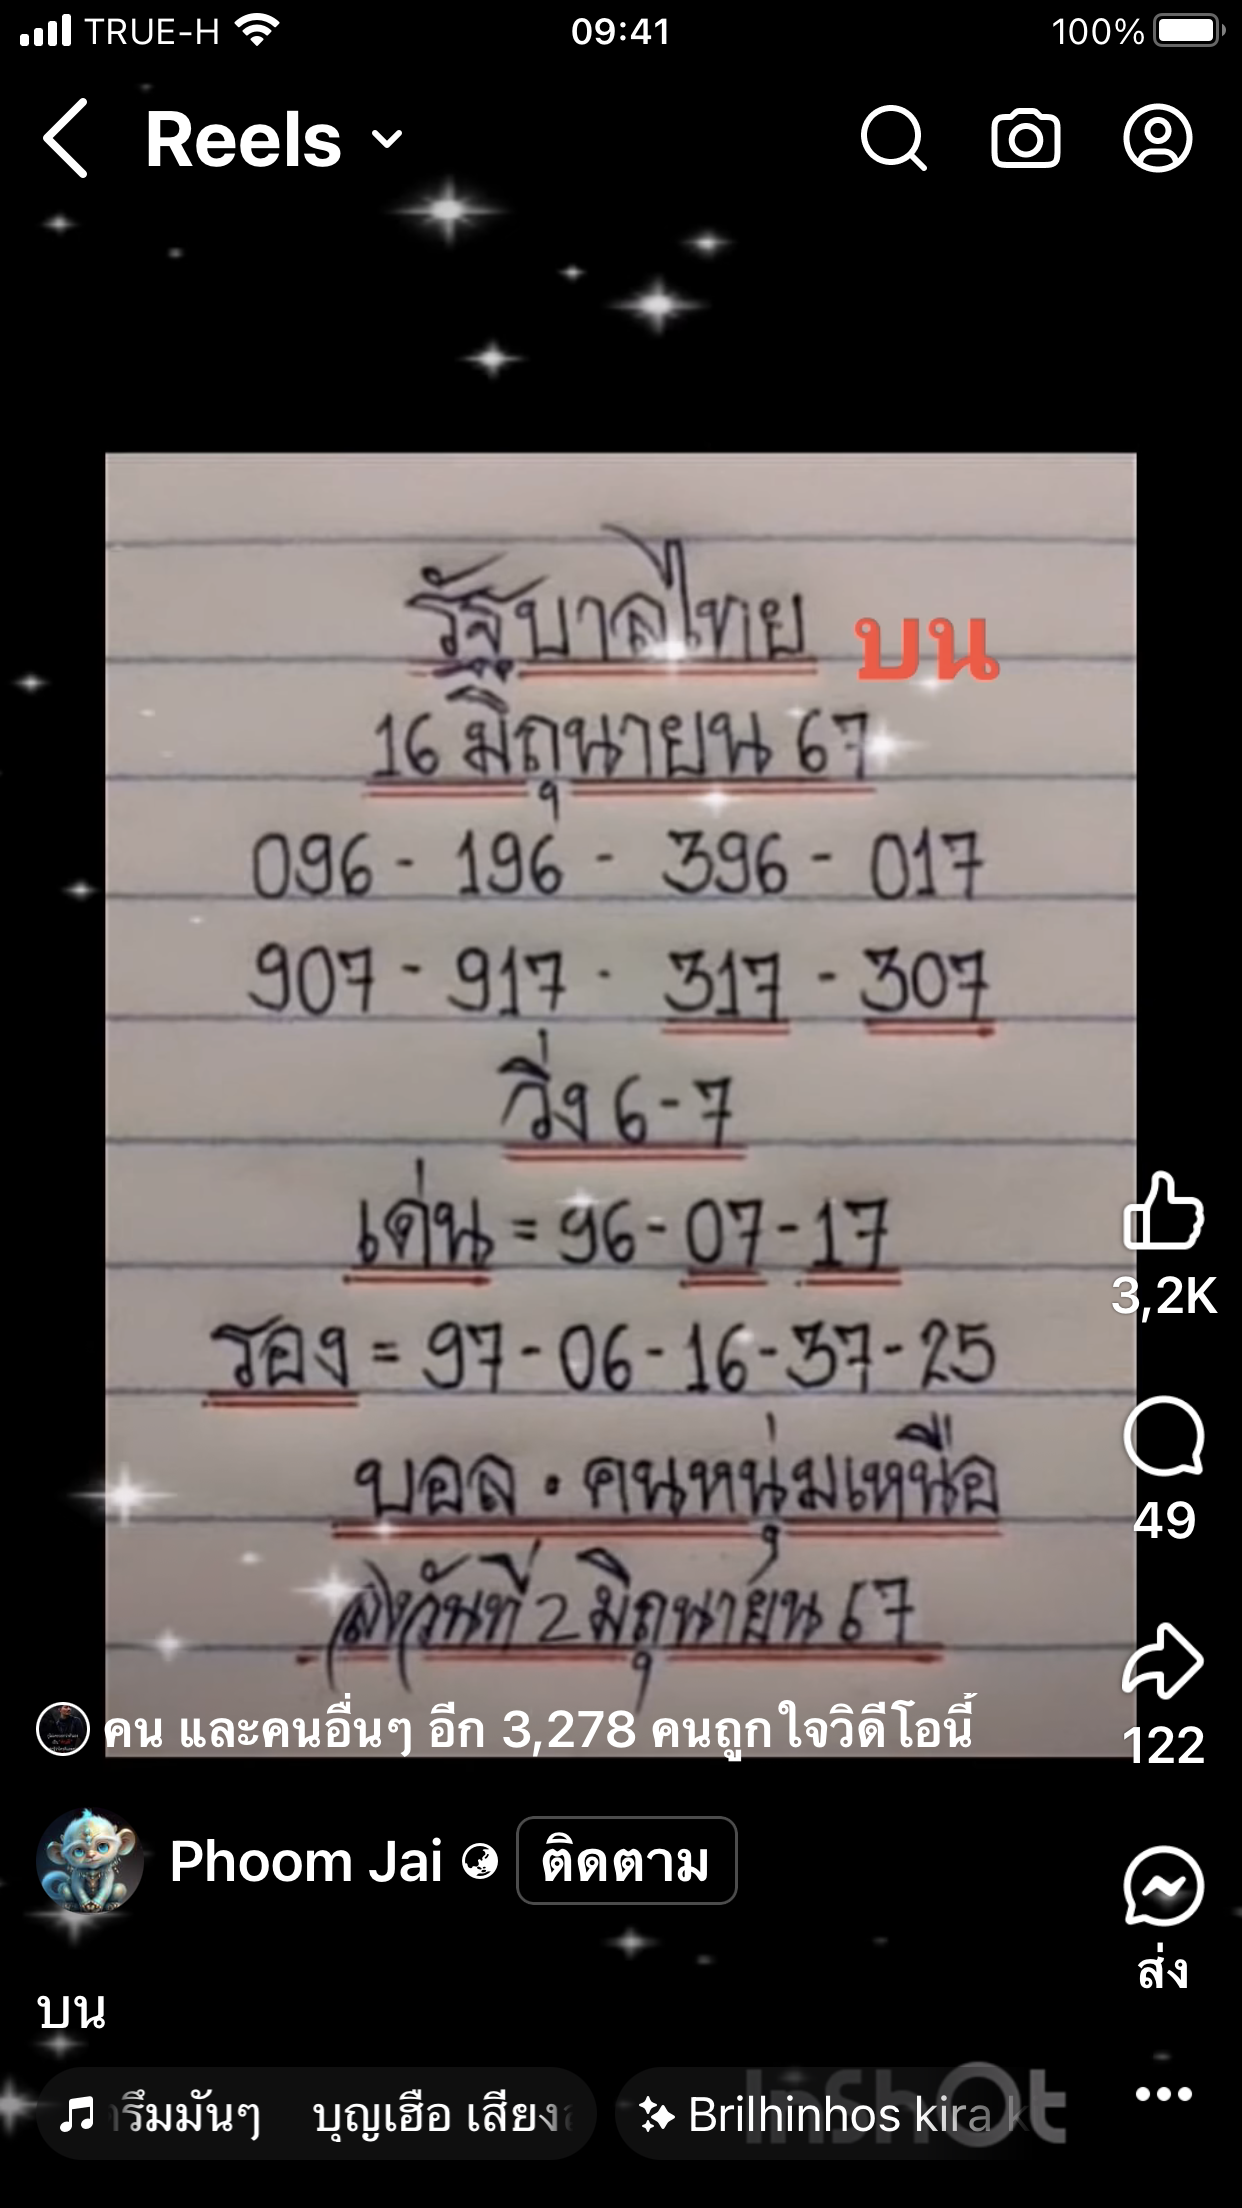 TRUE-H 09:41 100%
Reels
รัฐบาลไทย บน
16 มิถุนายน 67
096 - 196 - 396 - 017
907 - 917 - 317 - 307
วิ่ง 6 - 7
เด่น = 96 - 07 - 17
รอง = 97 - 06 - 16 - 37 - 25
บอล . คนหนุ่มเหนือ
วันที่ 2 มิถุนายน 67
3,2K
49
122
คน และคนอื่นๆ อีก 3,278 คนถูกใจวิดีโอนี้
Phoom Jai ติดตาม
ส่ง
บน
รึมมันๆ บุญเฮือ เสียง
Brilhinhos kira k
InShOt